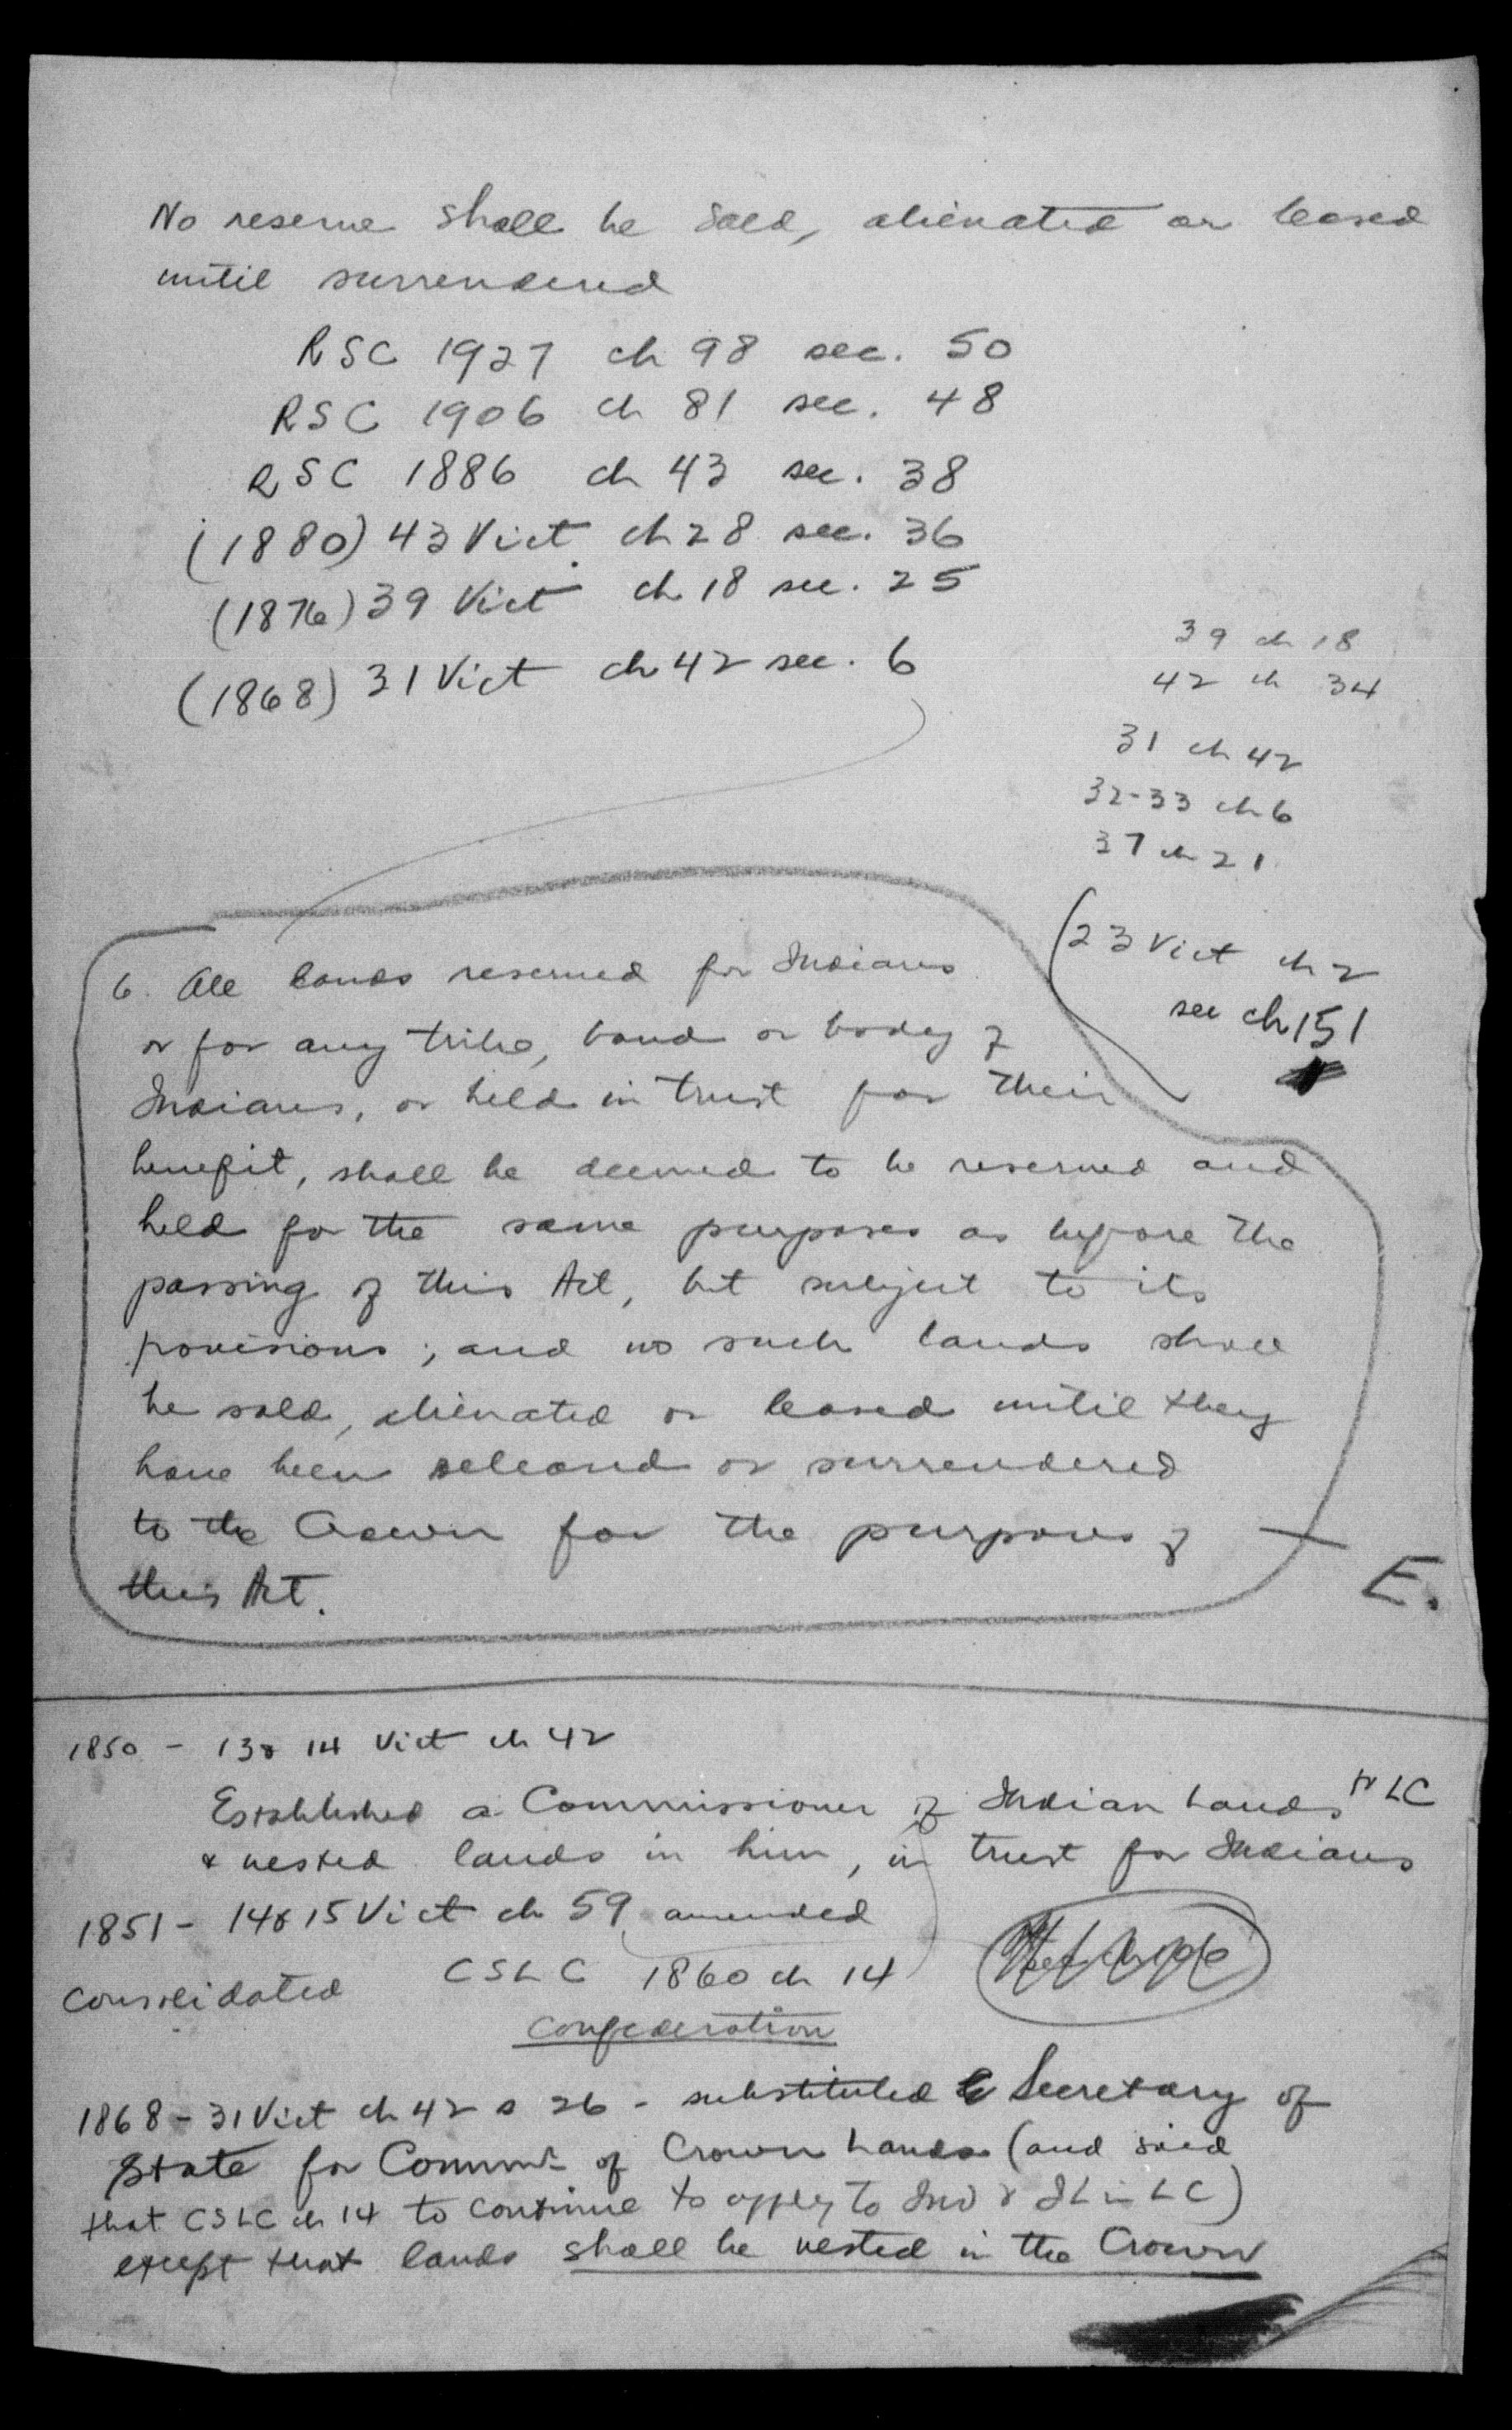 No reserve shall be sold, alienated or leased
until surrendered
RSC 1927 ch 98 sec. 50
RSC 1906 ch 81 sec. 48
RSC 1886 ch 43 sec. 38
(1880) 43 Vict ch 28 sec. 36
(1876) 39 Vict ch 18 sec. 25
(1868) 31 Vict ch 42 sec. 6
39 ch 18
42 ch 34
31 ch 42
32-33 ch 6
37 ch 21
(23 Vict ch 2
see ch 151
6. All lands reserved for Indians
or for any tribe, band or body of
Indians, or held in trust for their
benefit, shall be deemed to be reserved and
held for the same purposes as before the
passing of this Act, but subject to its
provisions; and no such lands shall
be sold, alienated or leased until they
have been released or surrendered
to the Crown for the purposes of
this Act.
E.
1850 - 13 & 14 Vict ch 42
Established a Commissioner of Indian Lands for LC
& vested lands in him, in trust for Indians
1851 - 14 & 15 Vict ch 59 amended
Consolidated CSLC 1860 ch 14
Confederation
1868 - 31 Vict ch 42 s 26 - substituted Secretary of
State for Commr of Crown Lands (and said
that CSLC ch 14 to continue to apply to Ind & IL in LC)
except that lands shall be vested in the Crown